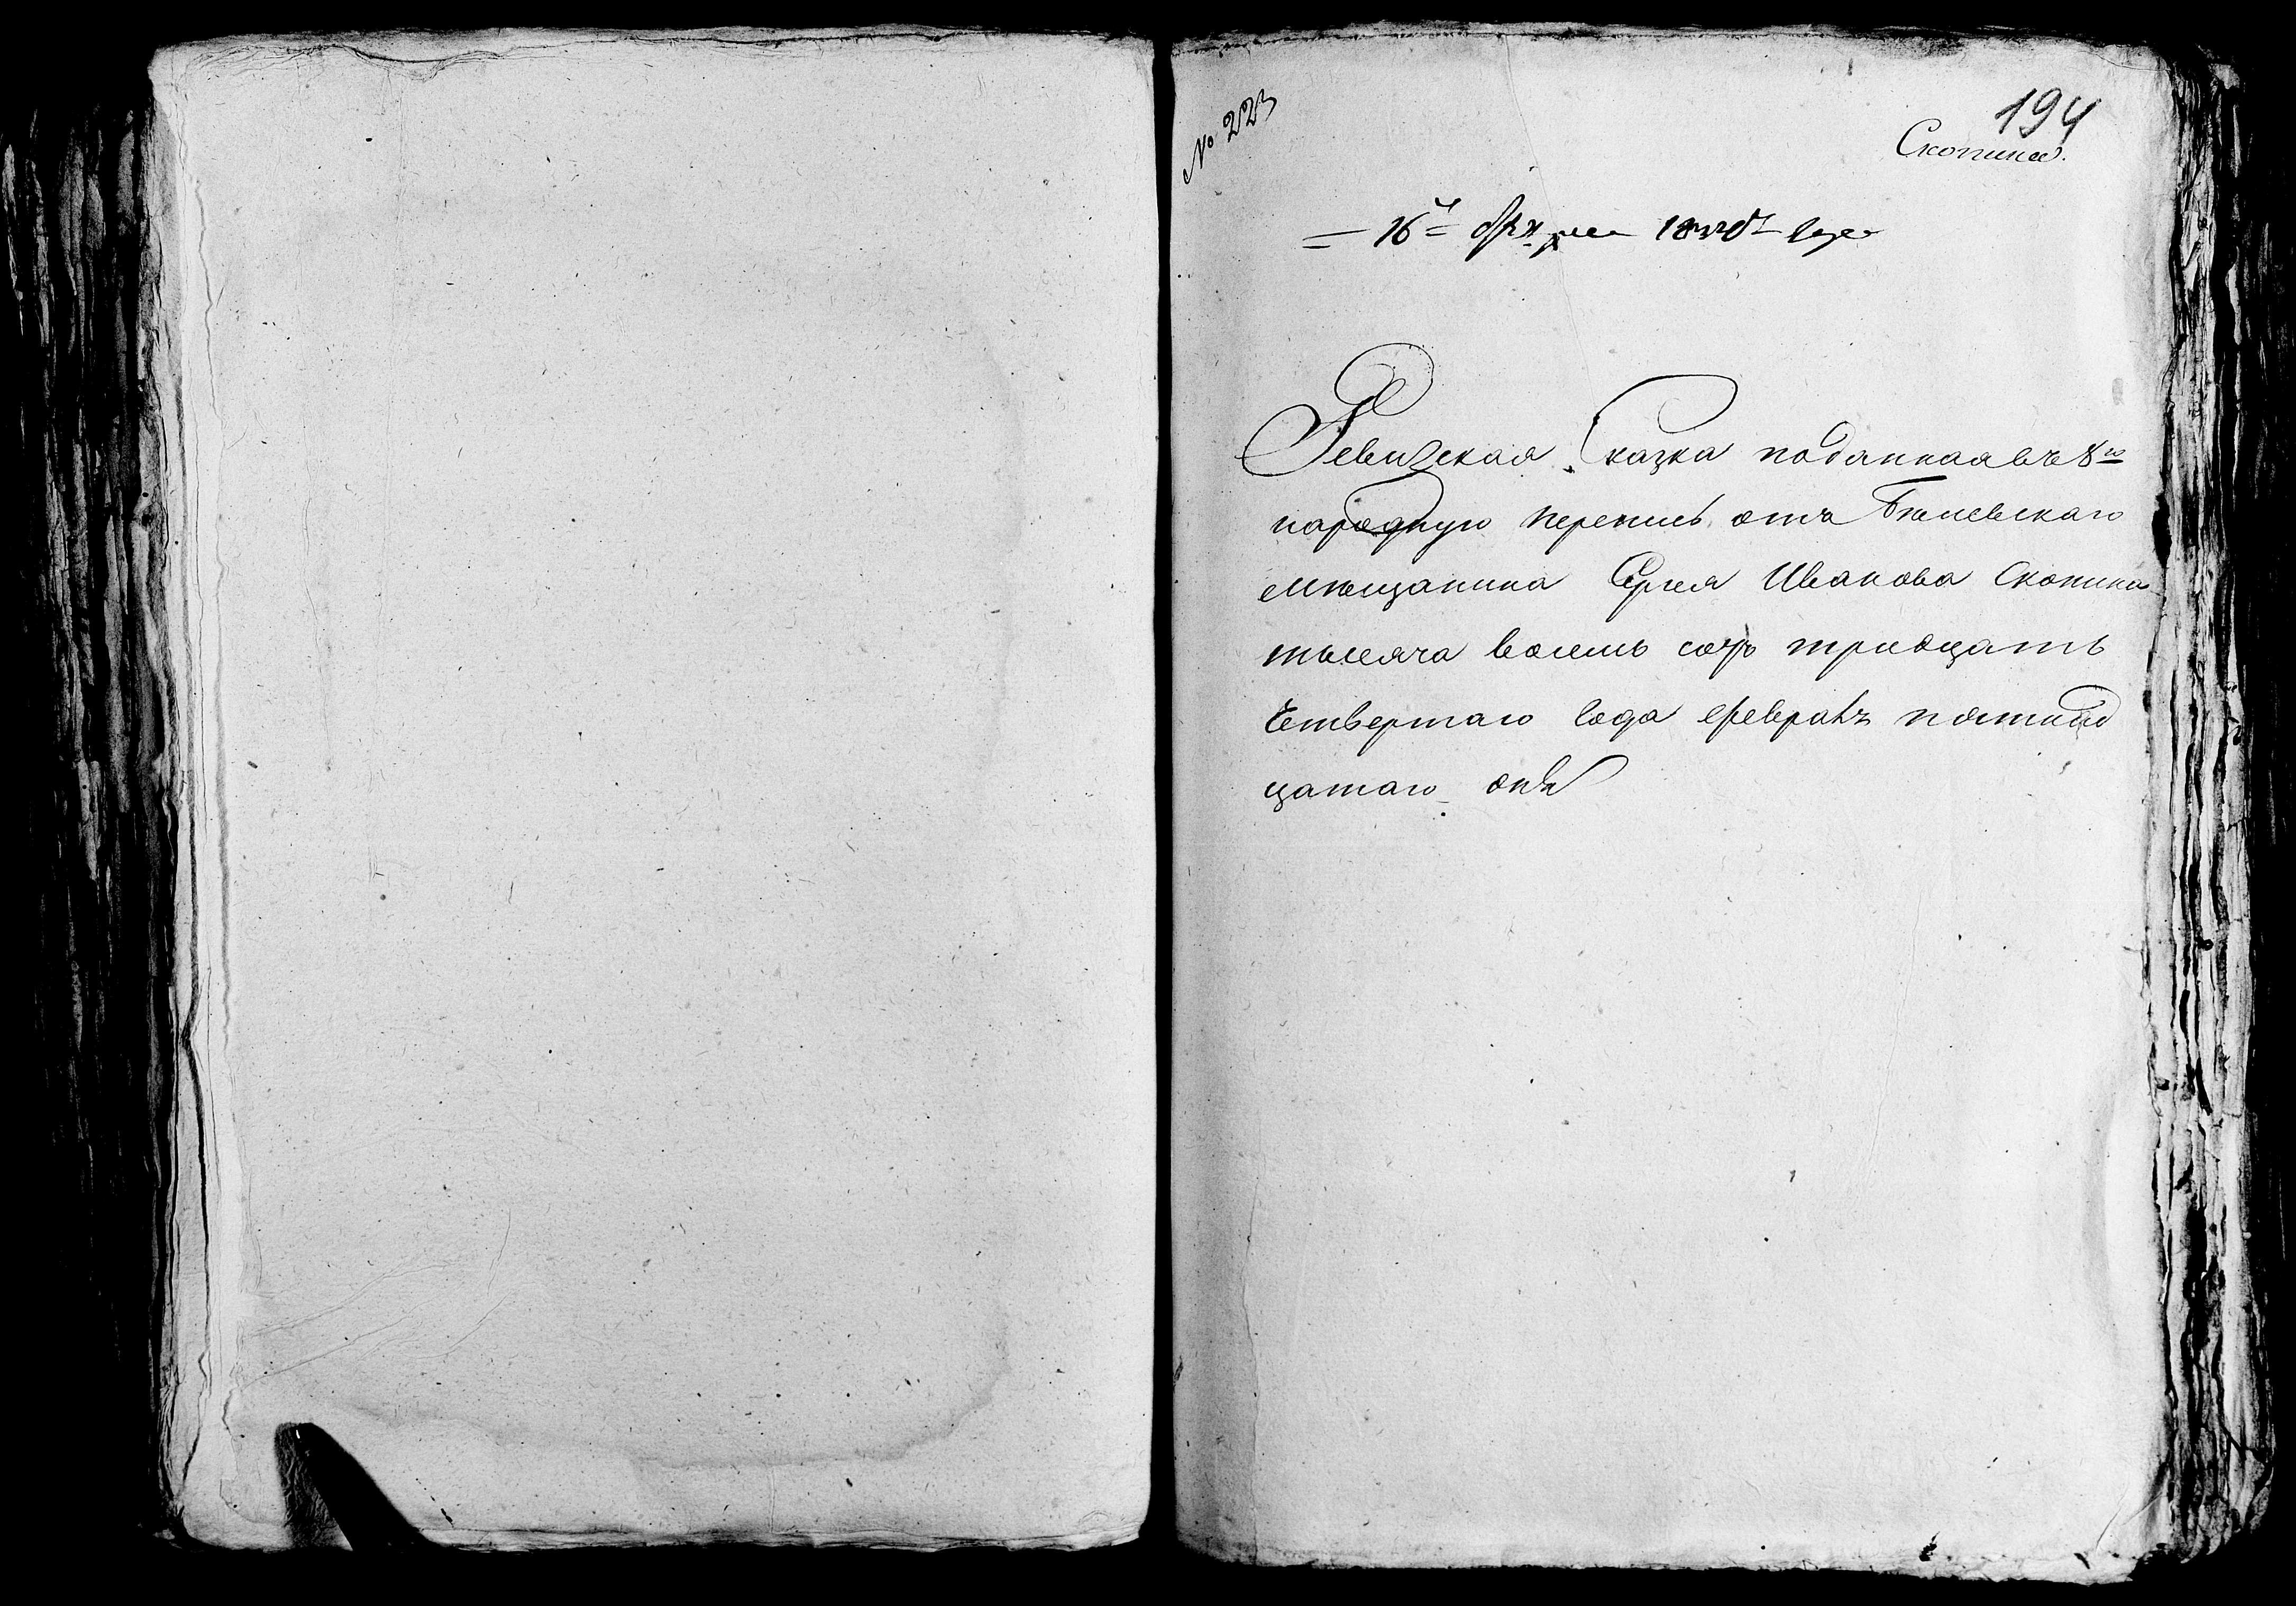 № 223
194
Скопина.
16
Ревизская Сказка поданная въ 8ю
народную перепись отъ Белевскаго
мѣщанина Сергея Иванова Скопина
тысяча восемь сотъ тридцать
четвертаго года февраля пятнад
цатаго дня